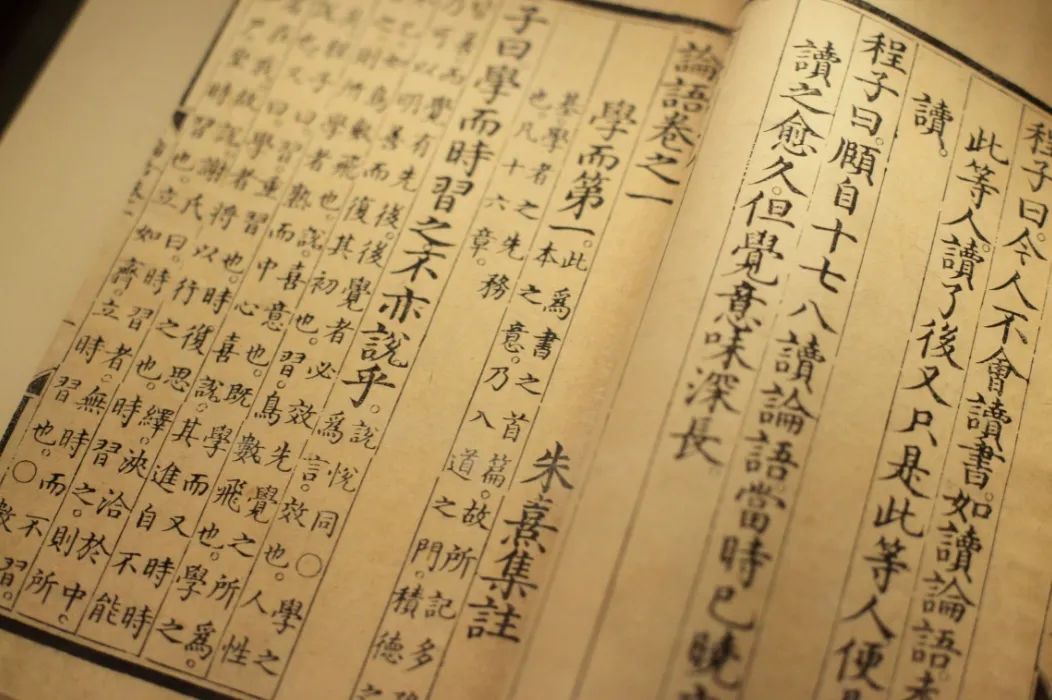 程子曰。今人不會讀書。如讀論語未
此等人。讀了後又只是此等人便
讀。
程子曰。頤自十七八讀論語當時已曉
讀之愈久。但覺意味深長。
論語卷之一
朱熹集註
學而第一。此爲書之首篇。故所記多務
本之意。乃入道之門。積德之
基。學者之先務
也。凡十六章。
子曰學而時習之不亦說乎。說悅同○學之
爲言效也。人性
善而覺有先後。後覺者必效先覺之所爲。
乃可以明善而復其初也。習。鳥數飛也。學之
已。如鳥數飛也。說。喜意也。既學而又時時
之則所學者熟。而中心喜說。其進自不能
程子曰。習。重習也。時復思繹。浹洽於中。
也。又曰。學者將以行之也。時習之。則所
在我。故說。謝氏曰。時習者。無時而不習。
尸。坐時習也。立如齊。立時習也。○